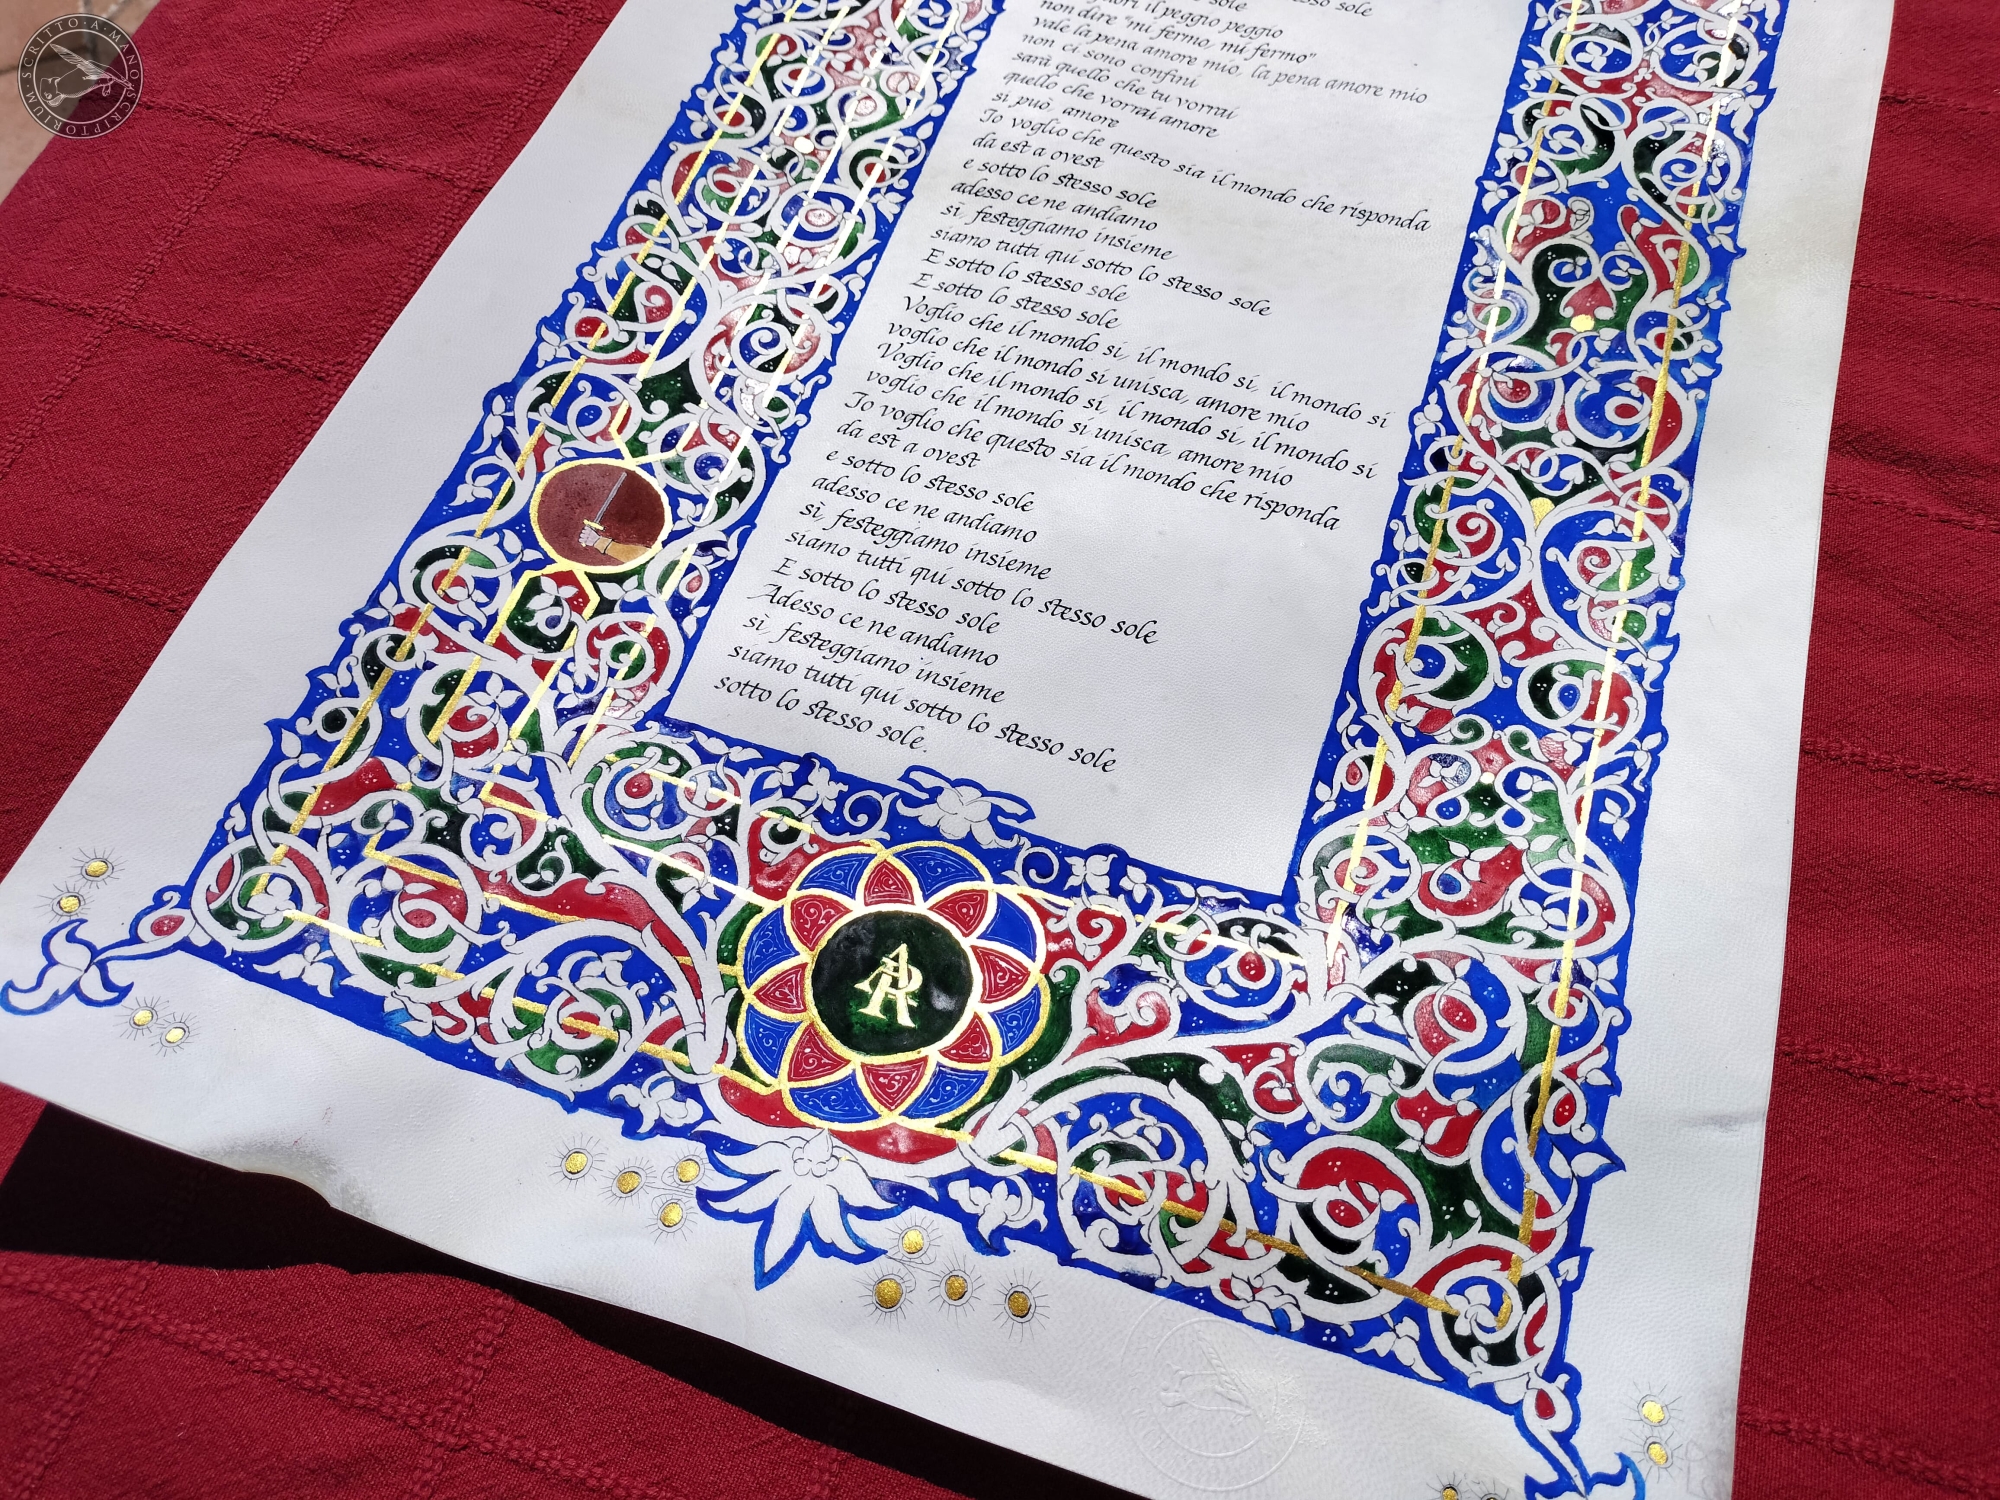 SCRITTO·A·MANO·SCRIPTORIUM·
stesso sole
sole
il peggio peggio
non dire "mi fermo, mi fermo"
vale la pena amore mio, la pena amore mio
non ci sono confini
sarà quello che tu vorrai
quello che vorrai amore
si può, amore
Io voglio che questo sia il mondo che risponda
da est a ovest
e sotto lo stesso sole
adesso ce ne andiamo
sì, festeggiamo insieme
siamo tutti qui sotto lo stesso sole
E sotto lo stesso sole
E sotto lo stesso sole
Voglio che il mondo si, il mondo si, il mondo si
voglio che il mondo si unisca, amore mio
Voglio che il mondo si, il mondo si, il mondo si
voglio che il mondo si unisca, amore mio
Io voglio che questo sia il mondo che risponda
da est a ovest
e sotto lo stesso sole
adesso ce ne andiamo
sì, festeggiamo insieme
siamo tutti qui sotto lo stesso sole
E sotto lo stesso sole
Adesso ce ne andiamo
sì, festeggiamo insieme
siamo tutti qui sotto lo stesso sole
sotto lo stesso sole.